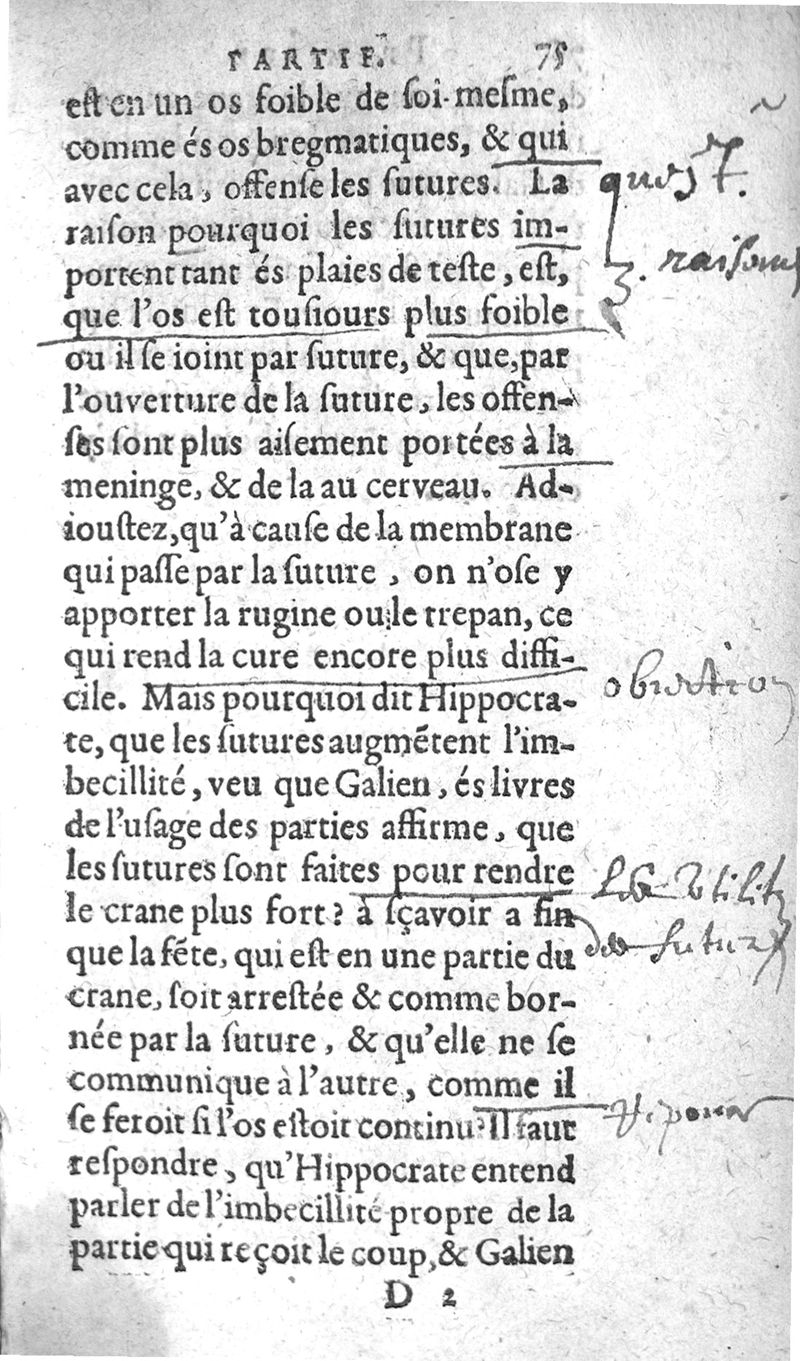 PARTIE. 75
est en un os foible de soi-mesme,
comme és os bregmatiques, & qui
avec cela, offense les sutures. La
quest.
raison pourquoi les sutures im-
portent tant és plaies de teste, est,
raison
que l'os est tousiours plus foible
ou il se ioint par suture, & que, par
l'ouverture de la suture, les offen-
ses sont plus aisement portées à la
meninge, & de la au cerveau. Ad-
ioustez, qu'à cause de la membrane
qui passe par la suture, on n'ose y
apporter la rugine ou le trepan, ce
qui rend la cure encore plus diffi-
obiection
cile. Mais pourquoi dit Hippocra-
te, que les sutures augmẽtent l'im-
becillité, veu que Galien, és livres
de l'usage des parties affirme, que
les sutures sont faites pour rendre
le crane plus fort? à sçavoir a fin
que la fẽte, qui est en une partie du
crane, soit arrestée & comme bor-
née par la suture, & qu'elle ne se
communique à l'autre, comme il
se feroit si l'os estoit continu? Il faut
respondre, qu'Hippocrate entend
parler de l'imbecillité propre de la
partie qui reçoit le coup, & Galien
D 2